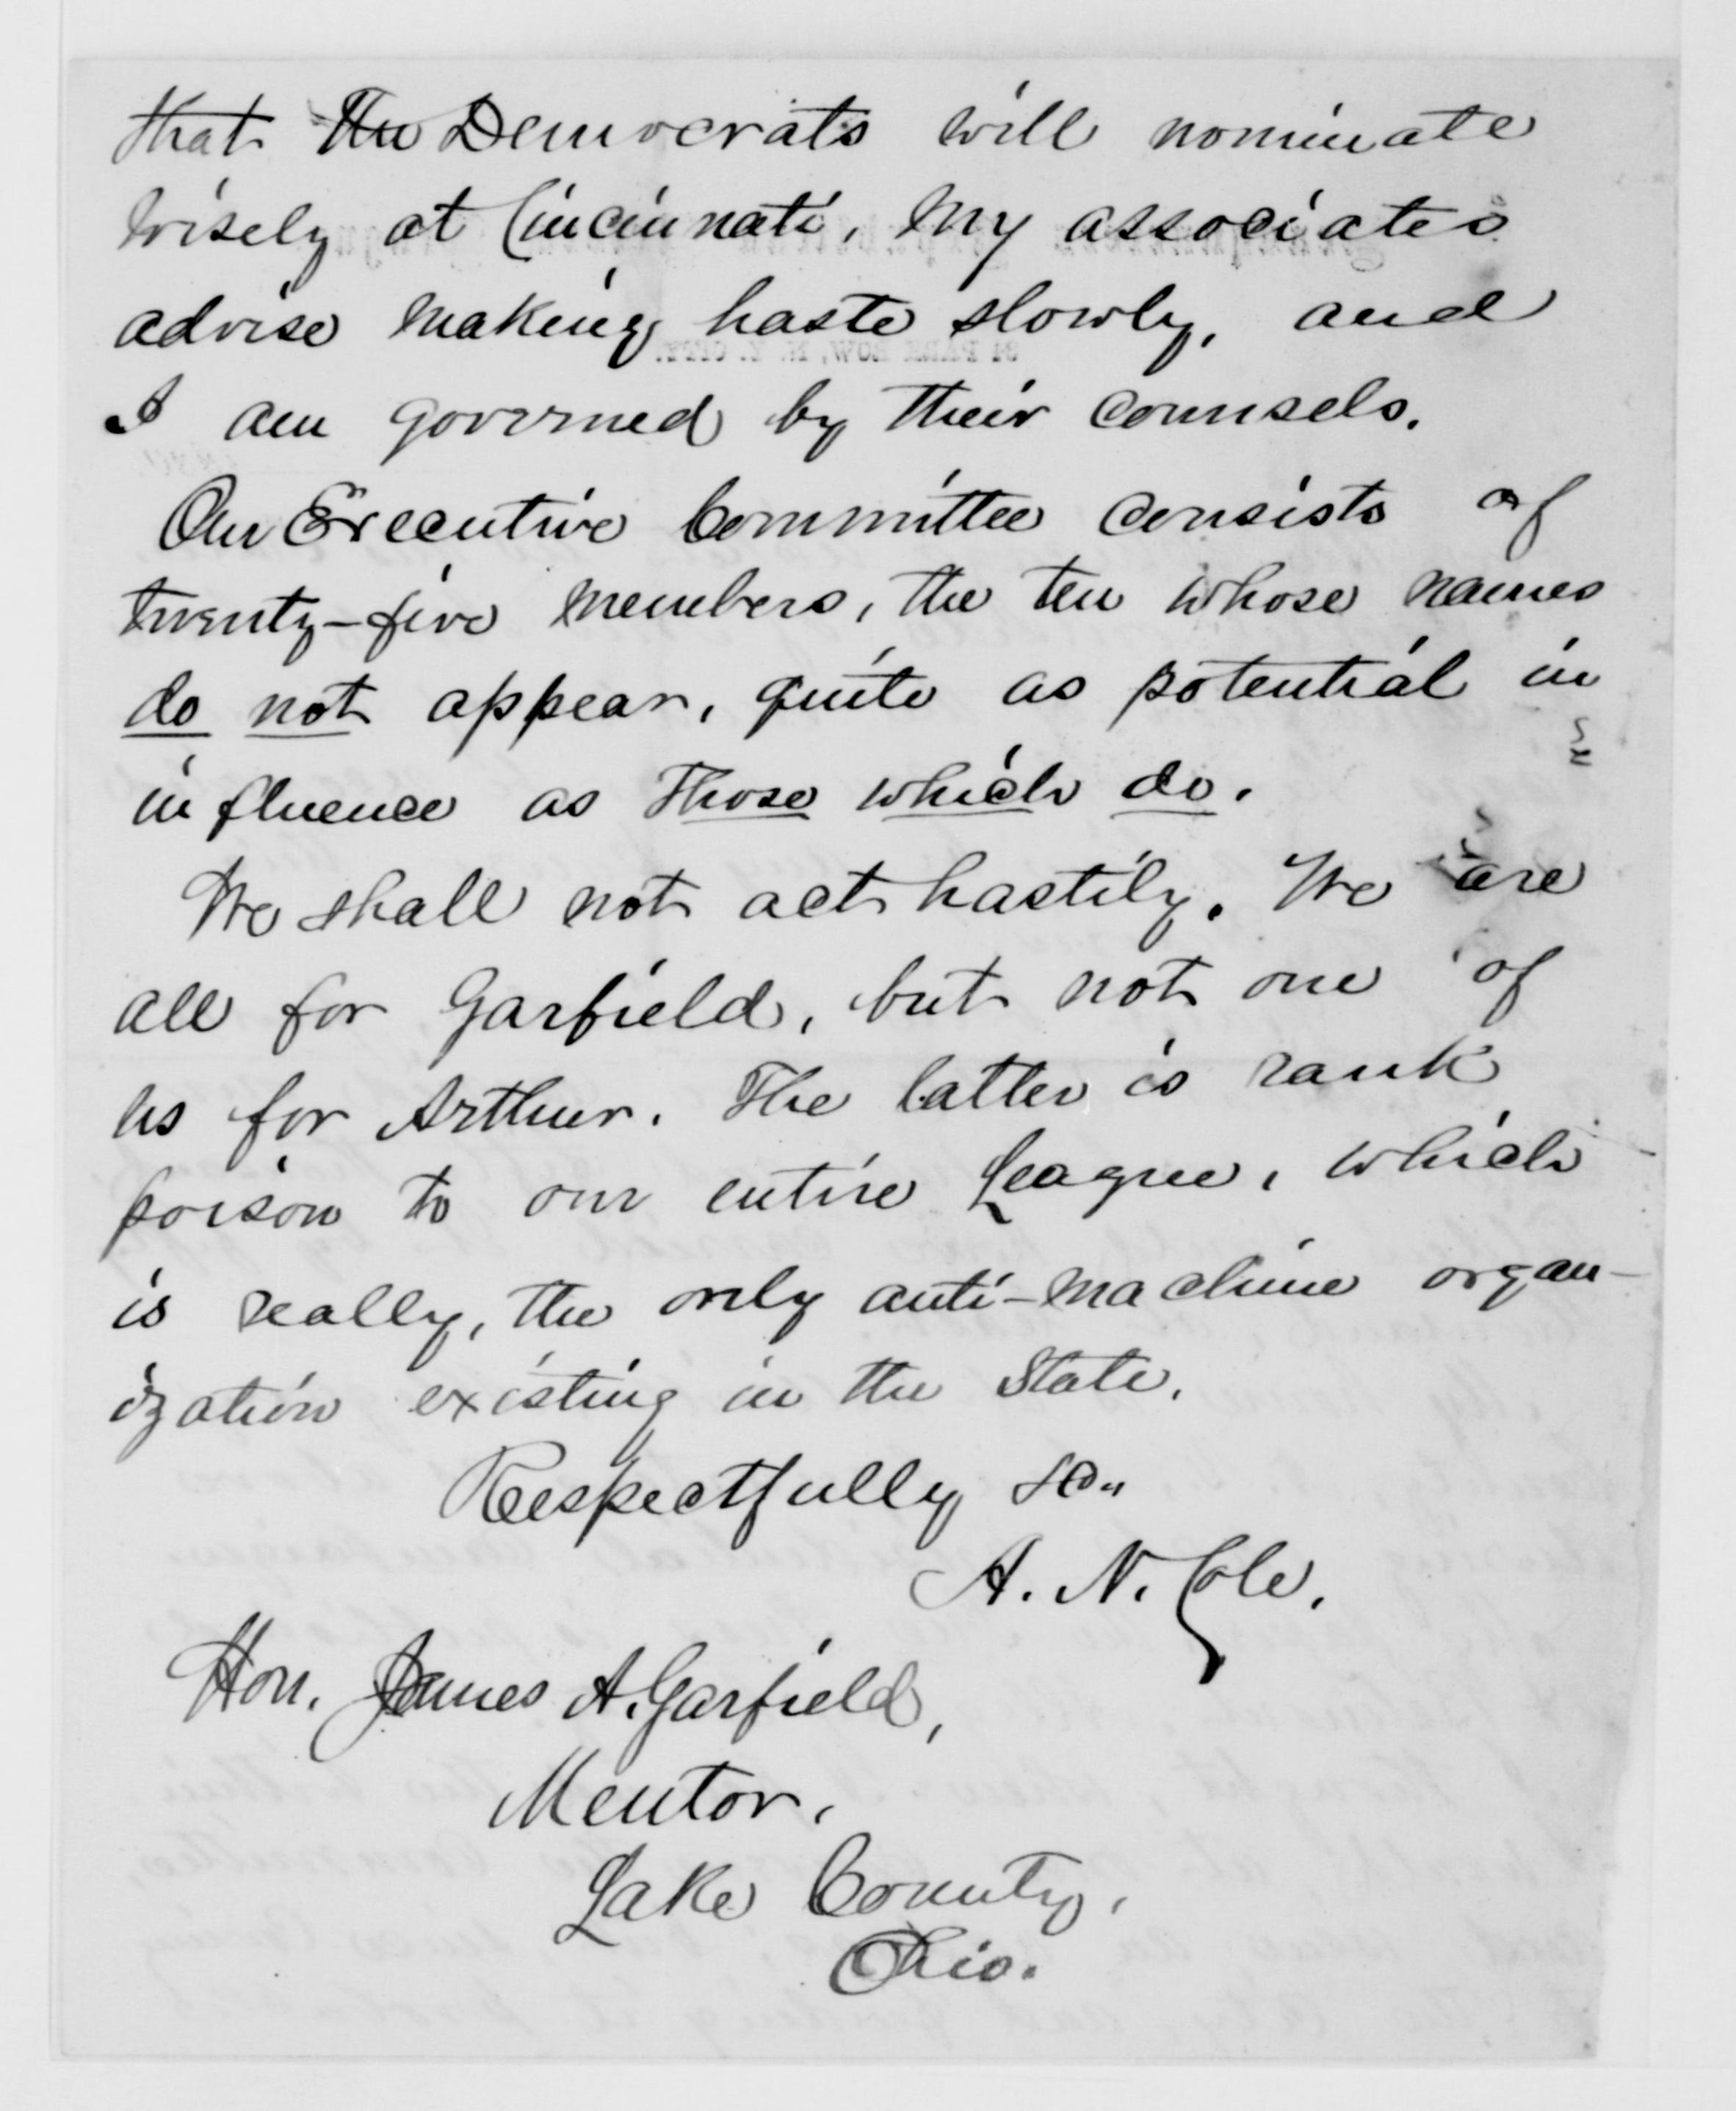 that the Democrats will nominate
wisely at Cincinnati, my associates
advise making haste slowly, and
I am governed by their counsels.
Our Executive Committee consists of
twenty-five members, the ten whose names
do not appear, quite as potential in
influence as those which do.
We shall not act hastily. We are
all for Garfield, but not one of
us for Arthur. The latter is rank
poison to our entire League, which
is really, the only anti-machine organ-
ization existing in the State.
Respectfully &c.,
A. N. Cole.
Hon. James A. Garfield,
Mentor,
Lake County,
Ohio.